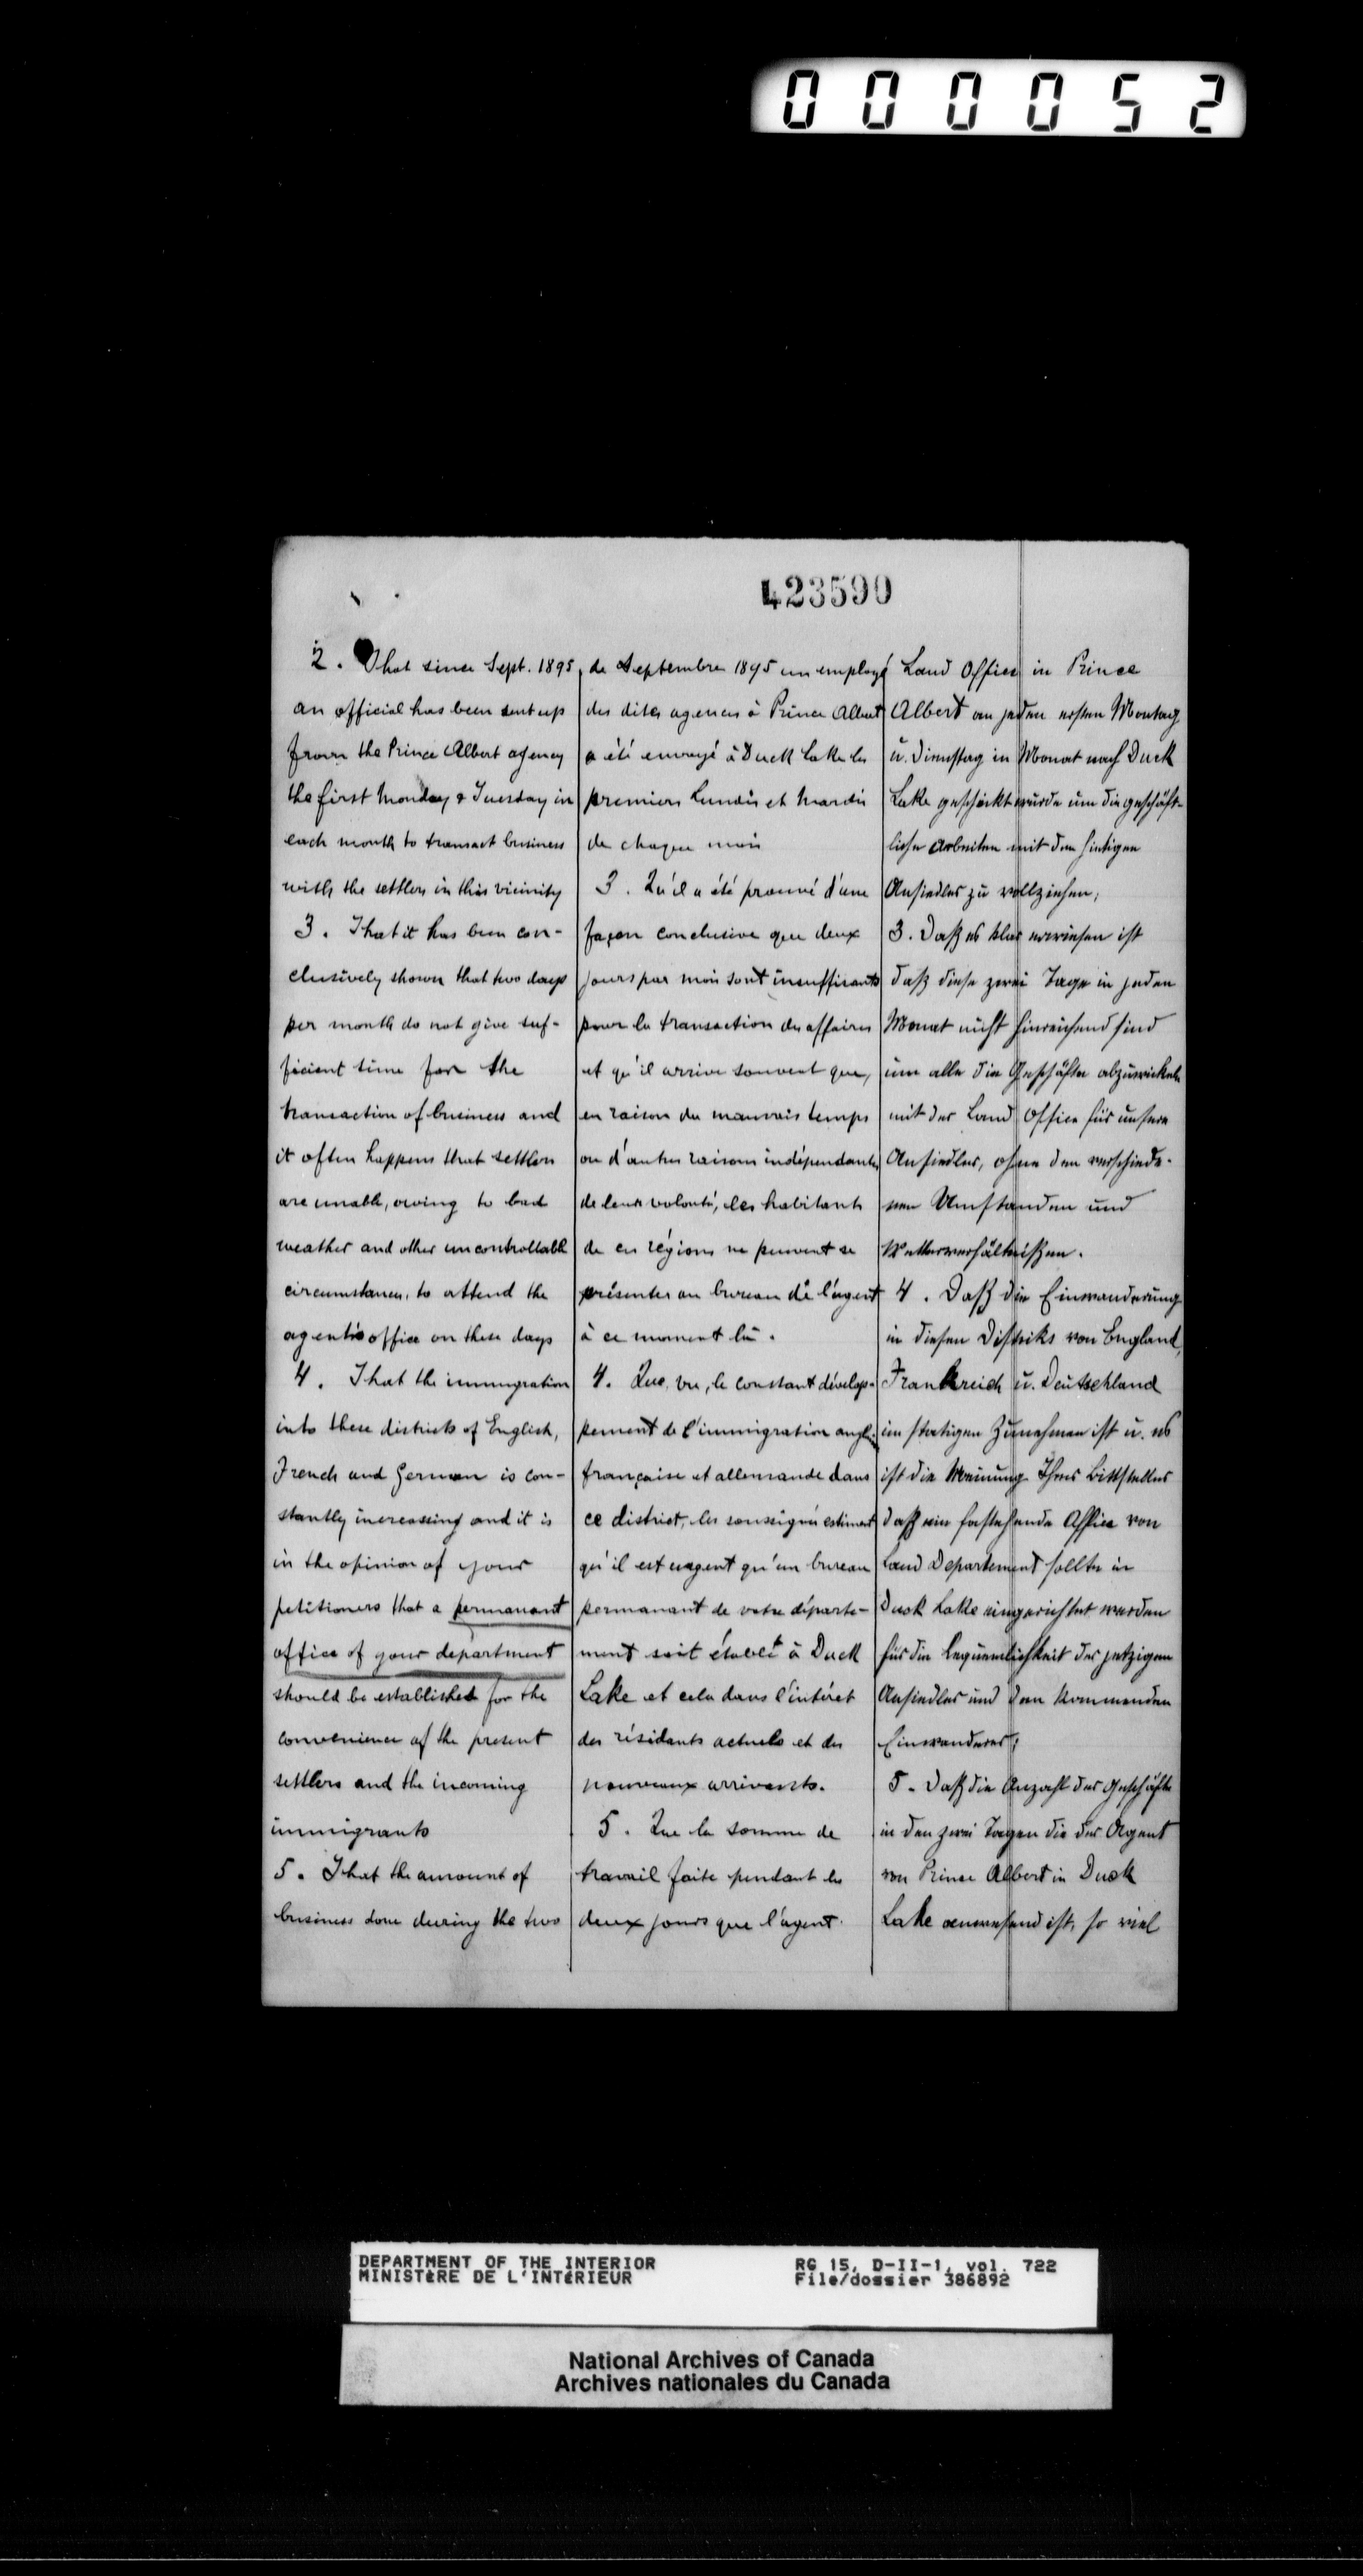 000052
423590
2. That since Sept. 1895,
an official has been sent up
from the Prince Albert agency
the first Monday & Tuesday in
each month to transact business
with the settlers in this vicinity
3. That it has been con-
clusively shown that two days
per month do not give suf-
ficient time for the
transaction of business and
it often happens that settlers
are unable, owing to bad
weather and other uncontrollable
circumstances, to attend the
agent's office on these days
4. That the immigration
into these districts of English,
French and German is con-
stantly increasing and it is
in the opinion of your
petitioners that a permanant
office of your department
should be established for the
convenience of the present
settlers and the incoming
immigrants
5. That the amount of
business done during the two
de Septembre 1895 un employé
des dites agences à Prince Albert
a été envoyé à Duck Lake les
premiers Lundis et Mardis
de chaque mois
3. Qu'il a été prouvé d'une
façon conclusive que deux
jours par mois sont insuffisants
pour la transaction des affaires
et qu'il arrive souvent que,
en raison du mauvais temps
ou d'autres raisons indépendantes
de leur volonté, les habitants
de ces régions ne peuvent se
présenter au bureau de l'agent
à ce moment là.
4. Que, vu, le constant dévelop-
pement de l'immigration anglaise
française et allemande dans
ce district, les soussignés estiment
qu'il est urgent qu'un bureau
permanant de votre départe-
ment soit établi à Duck
Lake et cela dans l'intéret
des résidants actuels et des
nouveaux arrivants.
5. Que la somme de
travail faite pendant les
deux jours que l'agent
Land Office in Prince
Albert an jeden ersten Montag
u. Dienstag in Monat nach Duck
Lake geschickt wurde um die geschäft-
liche Arbeiten mit den hiesigen
Ansiedler zu vollziehen;
3. Daß es klar erwiesen ist
daß diese zwei Tage in jeden
Monat nicht hinreichend sind
um alle die Geschäfte abzuwickeln
mit der Land Office für unsere
Ansiedler, ohne den verschiede-
nen Umstanden und
Wetterverhältnißen.
4. Daß die Einwanderung
in diesen Distriks von England,
Frankreich u. Deutschland
im stetigen Zunehmen ist u. es
ist die Meinung Ihres Bittsteller
daß ein festehende Office von
Land Departement sollte in
Duck Lake eingerichtet werden
für die bequemlichkeit der jetzigen
Ansiedler und den kommenden
Einwanderer;
5. Daß die Anzahl der Geschäfte
in den zwei Tagen die der Agent
von Prince Albert in Duck
Lake anwesend ist, so viel
DEPARTMENT OF THE INTERIOR
MINISTèRE DE L'INTéRIEUR
RG 15, D-II-1, vol. 722
File/dossier 386892
National Archives of Canada
Archives nationales du Canada